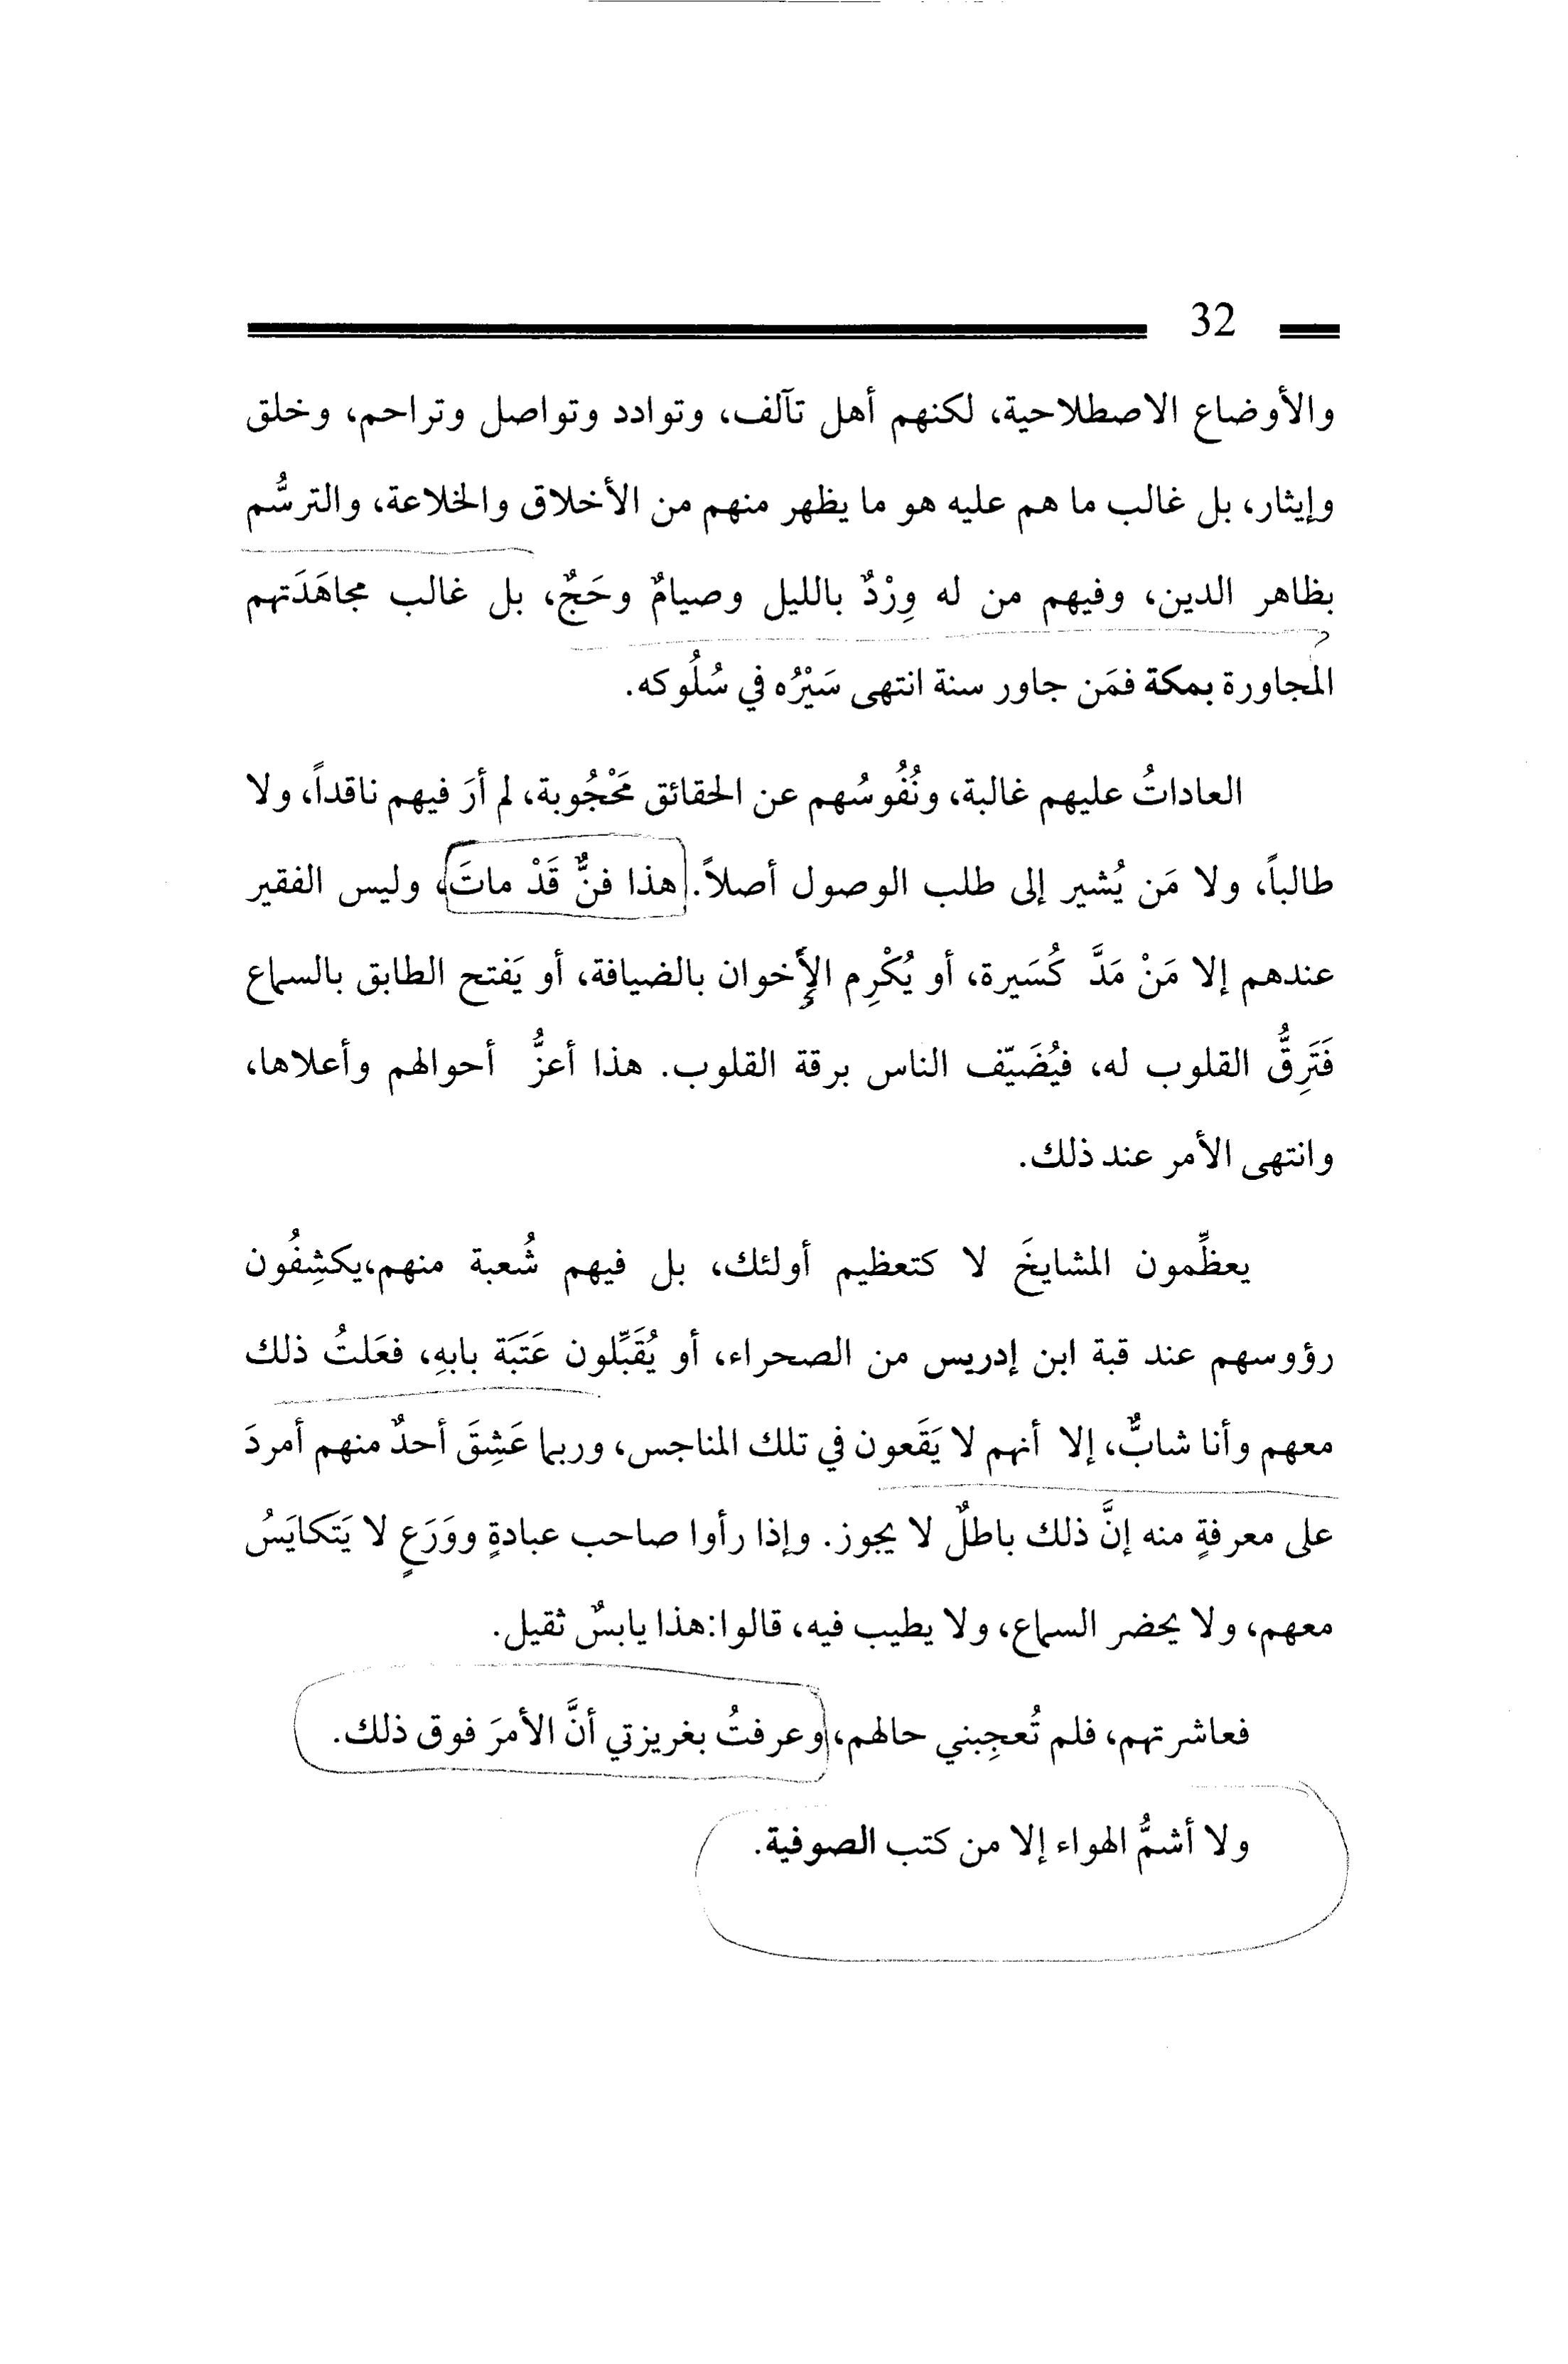 32
والأوضاع الاصطلاحية، لكنهم أهل تآلف، وتوادد وتواصل وتراحم، وخلق
وإيثار، بل غالب ما هم عليه هو ما يظهر منهم من الأخلاق والخلاعة، والترسُّم
بظاهر الدين، وفيهم من له وِرْدٌ بالليل وصيامٌ وحَجٌ، بل غالب مجاهَدَتهم
المجاورة بمكة فمَن جاور سنة انتهى سَيْرُه في سُلُوكه.
العاداتُ عليهم غالبة، ونُفُوسُهم عن الحقائق مَحْجُوبة، لم أرَ فيهم ناقداً، ولا
طالباً، ولا مَن يُشير إلى طلب الوصول أصلاً. هذا فنٌّ قَدْ ماتَ، وليس الفقير
عندهم إلا مَنْ مَدَّ كُسَيرة، أو يُكْرِم الإخوان بالضيافة، أو يَفتح الطابق بالسماع
فَتَرِقُّ القلوب له، فيُضَيّف الناس برقة القلوب. هذا أعزُّ أحوالهم وأعلاها،
وانتهى الأمر عند ذلك.
يعظِّمون المشايخَ لا كتعظيم أولئك، بل فيهم شُعبة منهم،يكشِفُون
رؤوسهم عند قبة ابن إدريس من الصحراء، أو يُقَبِّلون عَتَبَة بابهِ، فعَلتُ ذلك
معهم وأنا شابٌّ، إلا أنهم لا يَقَعون في تلك المناجس، وربما عَشِقَ أحدٌ منهم أمردَ
على معرفةٍ منه إنَّ ذلك باطلٌ لا يجوز. وإذا رأوا صاحب عبادةٍ ووَرَعٍ لا يَتَكايَسُ
معهم، ولا يحضر السماع، ولا يطيب فيه، قالوا:هذا يابسٌ ثقيل.
فعاشرتهم، فلم تُعجِبني حالهم، وعرفتُ بغريزتي أنَّ الأمرَ فوق ذلك.
ولا أشمُّ الهواء إلا من كتب الصوفية.